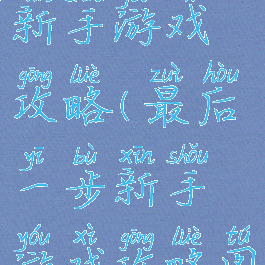 新手游戏
gōng lüè zuì hòu
攻略(最后
yī bù xīn shǒu
一步新手
yóu xì gōng lüè tú
游戏攻略图